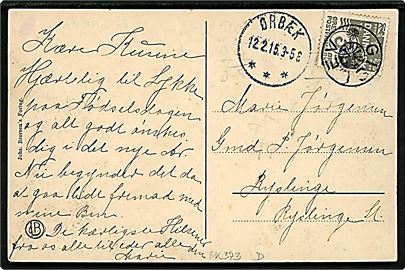 Kære Kusine
Hjærtelig til Lykke
paa Fødselsdagen
og alt godt ønskes
dig i det nye Aar.
Nu begynder det da
at gaa lidt fremad med
mine Ben.
De kærligste Hilsner
fra os alle til eder alle
Marie
Johs. Brorson's Forlag.
ØRBÆK
12.2.15.3-5 E
Marie Jørgensen
Gmd J. Jørgensen
Ryslinge
Ryslinge St.